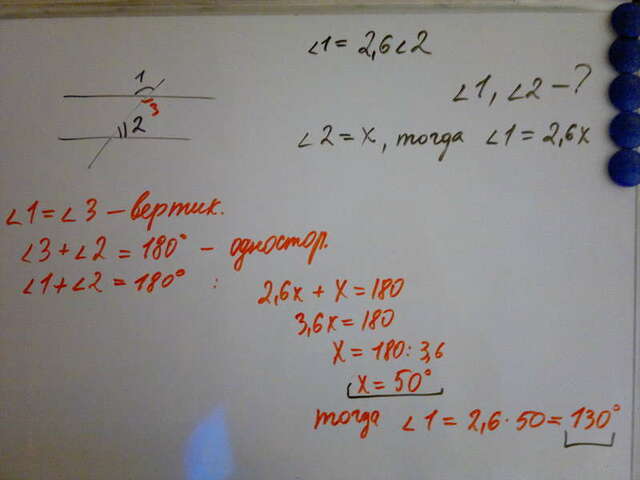 ∠1 = 2,6∠2
∠1, ∠2 – ?
∠2 = x, тогда ∠1 = 2,6x
1
3
2
∠1 = ∠3 – вертик.
∠3 + ∠2 = 180° – одностор.
∠1 + ∠2 = 180° :
2,6x + x = 180
3,6x = 180
x = 180 : 3,6
x = 50°
тогда ∠1 = 2,6 · 50 = 130°